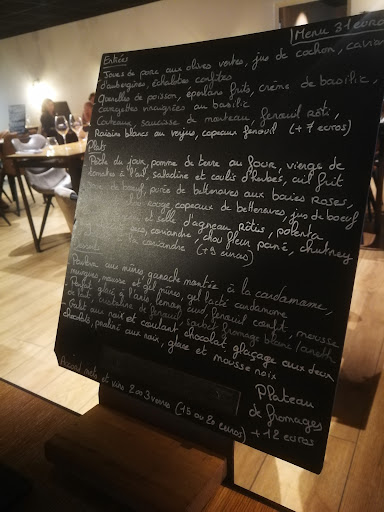 Menu 31 euros
Entrées
Joues de porc aux olives vertes, jus de cochon, caviar
d'aubergines, échalotes confites
Quenelles de poisson, épeautre frits, crème de basilic,
courgettes vinaigrées au basilic
Couteaux, saucisse de morteau, fenouil rôti,
Raisins blancs au verjus, copeaux fenouil (+7 euros)
Plats
Pêche du jour, pomme de terre au four, vierge de
tomates à l'ail, saladine et coulis d'herbes, ail frit
de boeuf, purée de betteraves aux baies roses,
rouge copeaux de betteraves, jus de boeuf
et selle d'agneau rôties, polenta
coriandre, chou fleur pané, chutney
coriandre (+9 euros)
Dessert
Pavlova aux mûres, ganache montée à la cardamome,
meringues, mousse et gel mûres, gel lacté cardamome
- Parfait glacé à l'anis, lemon curd, fenouil confit, mousse
au lait, croustillant de fenouil, sorbet fromage blanc/aneth
- Galet aux noix et coulant chocolat glaçage aux deux
chocolats, praliné aux noix, glace et mousse noix
Plateau
de fromages
+12 euros
Accord mets et vins 2 ou 3 verres (15 ou 20 euros)